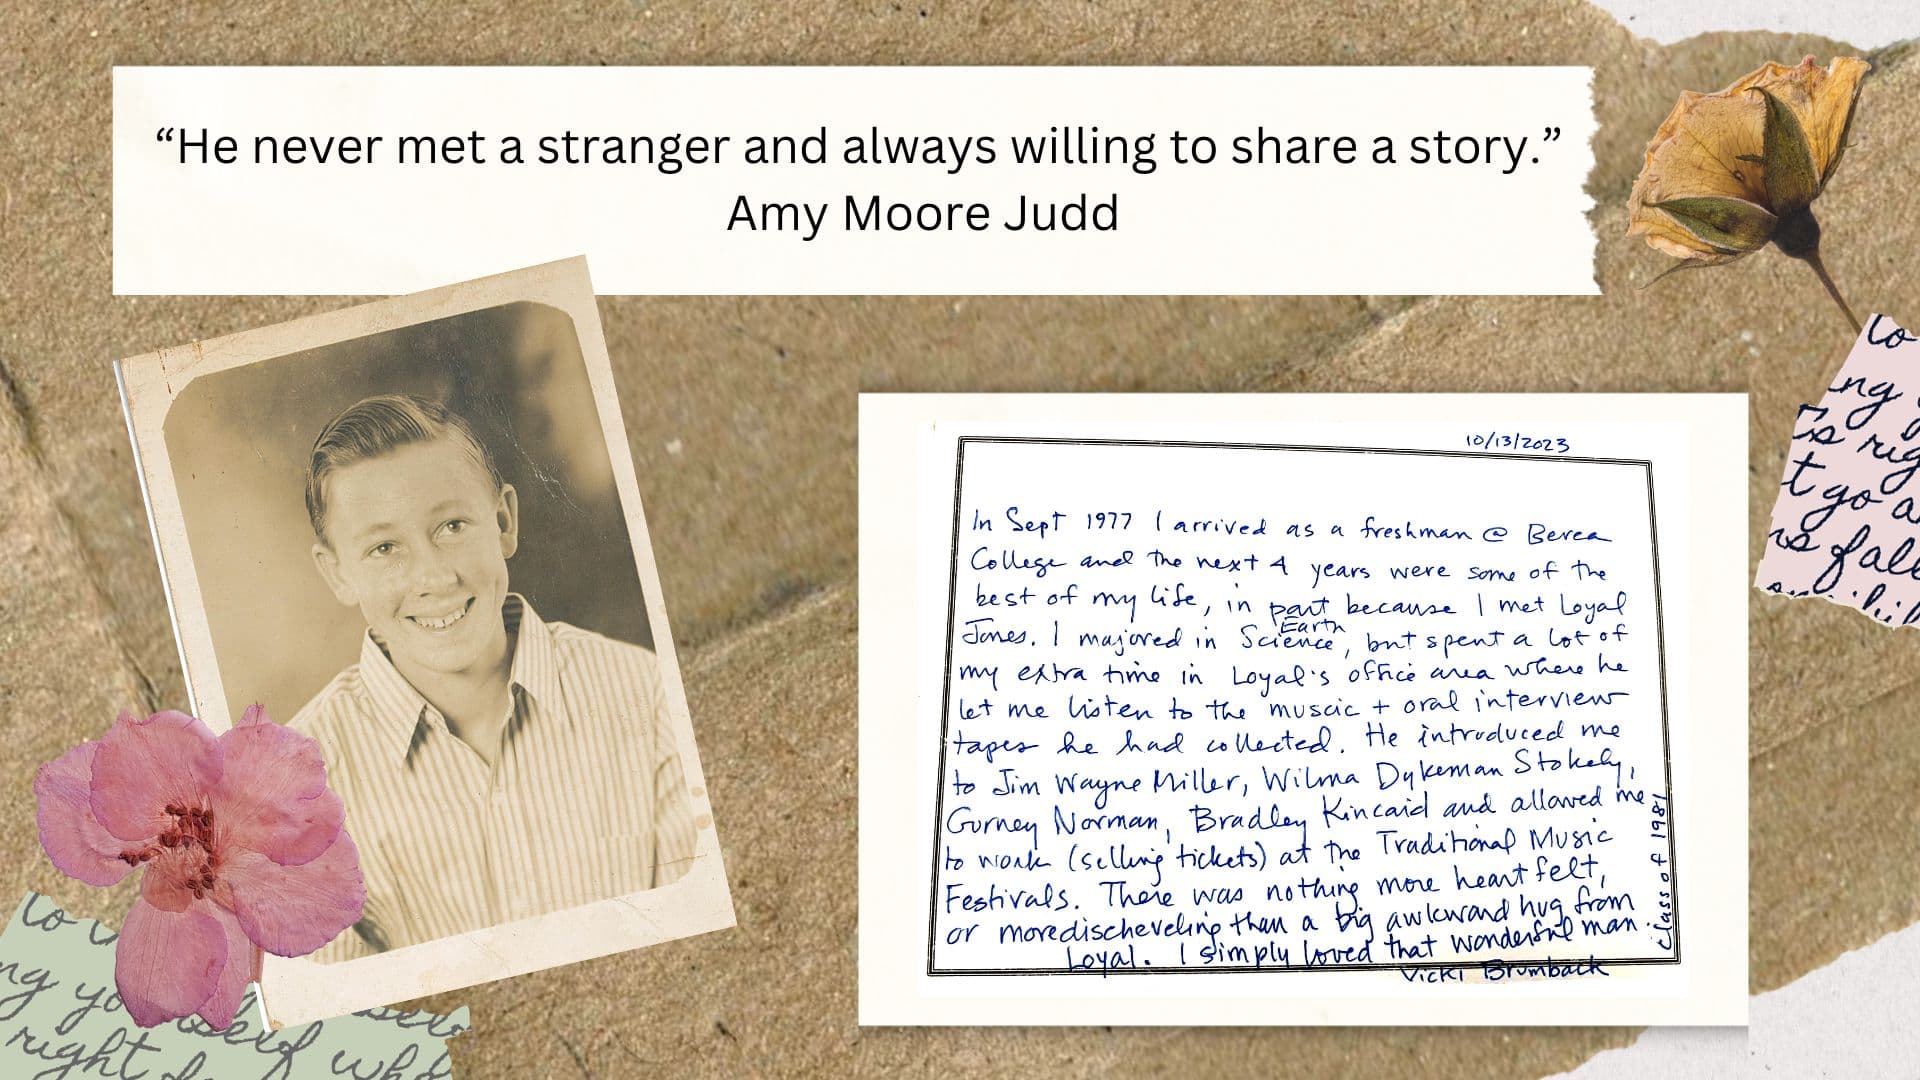 “He never met a stranger and always willing to share a story.”
Amy Moore Judd
10/13/2023
In Sept 1977 I arrived as a freshman @ Berea
College and the next 4 years were some of the
best of my life, in part because I met Loyal
Jones. I majored in Earth Science, but spent a lot of
my extra time in Loyal's office area where he
let me listen to the muscic + oral interview
tapes he had collected. He introduced me
to Jim Wayne Miller, Wilma Dykeman Stokely,
Gurney Norman, Bradley Kincaid and allowed me
to work (selling tickets) at the Traditional Music
Festivals. There was nothing more heartfelt,
or more discheveling than a big awkward hug from
Loyal. I simply loved that wonderful man.
Vicki Brumback
Class of 1981
to
ng
rig
t go a
fall
to
ng yourself
right
self who